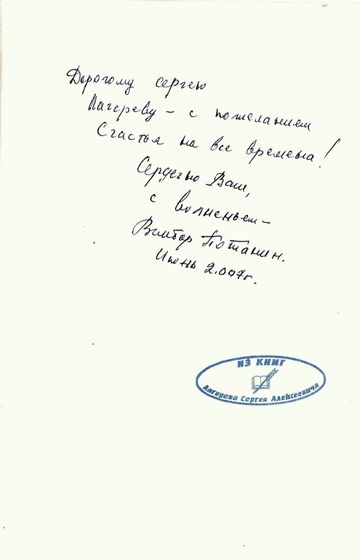 Дорогому Сергею
Лагереву – с пожеланием
Счастья на все времена!
Сердечно Ваш,
с волненьем –
Виктор Потанин.
Июнь 2.007г.
ИЗ КНИГ
Лагерева Сергея Алексеевича